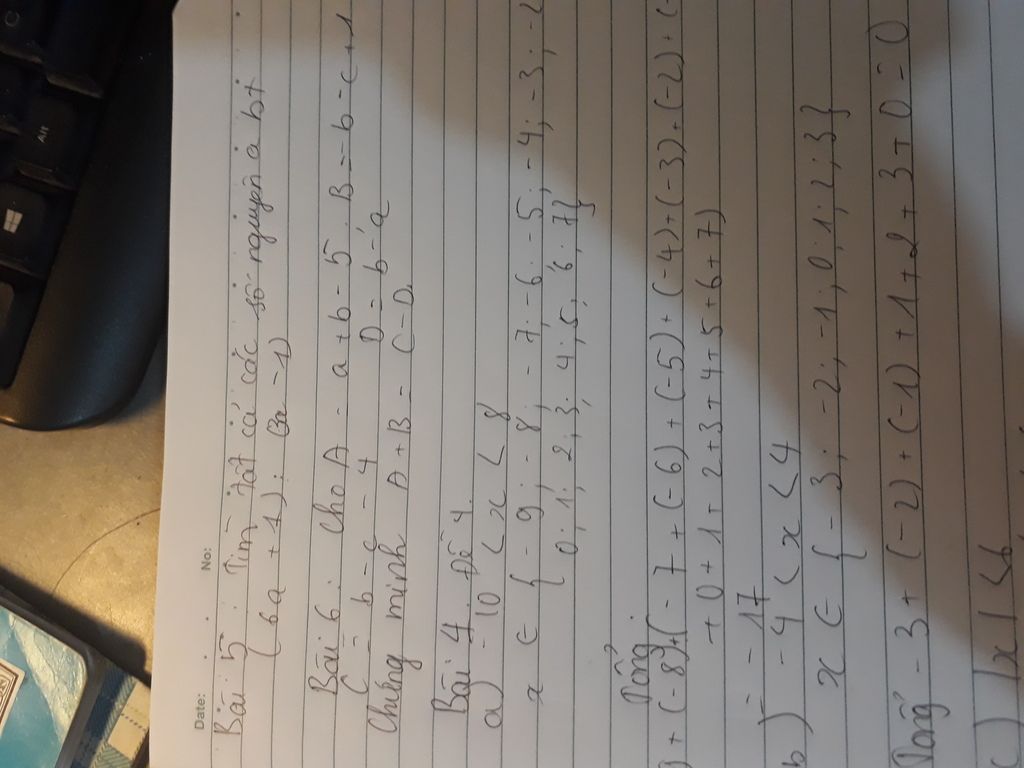 Date: No:
Bài 5. Tìm tất cả các số nguyên a bt
(6a + 1) : (3a - 1)
Bài 6. Cho A = a + b - 5. B = - b - c + 1
C = b - c - 4 D = b - a
Chứng minh A + B = C - D.
Bài 4. Đề 4.
a) - 10 < x < 8
x ∈ { - 9; - 8; - 7; - 6; - 5; - 4; - 3; - 2
0; 1; 2; 3; 4; 5; 6; 7}
Tổng:
) + (-8) + (- 7 + (-6) + (-5) + (-4) + (-3) + (-2) + (-
+ 0 + 1 + 2 + 3 + 4 + 5 + 6 + 7)
= - 17
b) - 4 < x < 4
x ∈ { - 3; - 2; - 1; 0; 1; 2; 3}
Tổng - 3 + (-2) + (-1) + 1 + 2 + 3 + 0 = 0
c) |x| ≤ 6